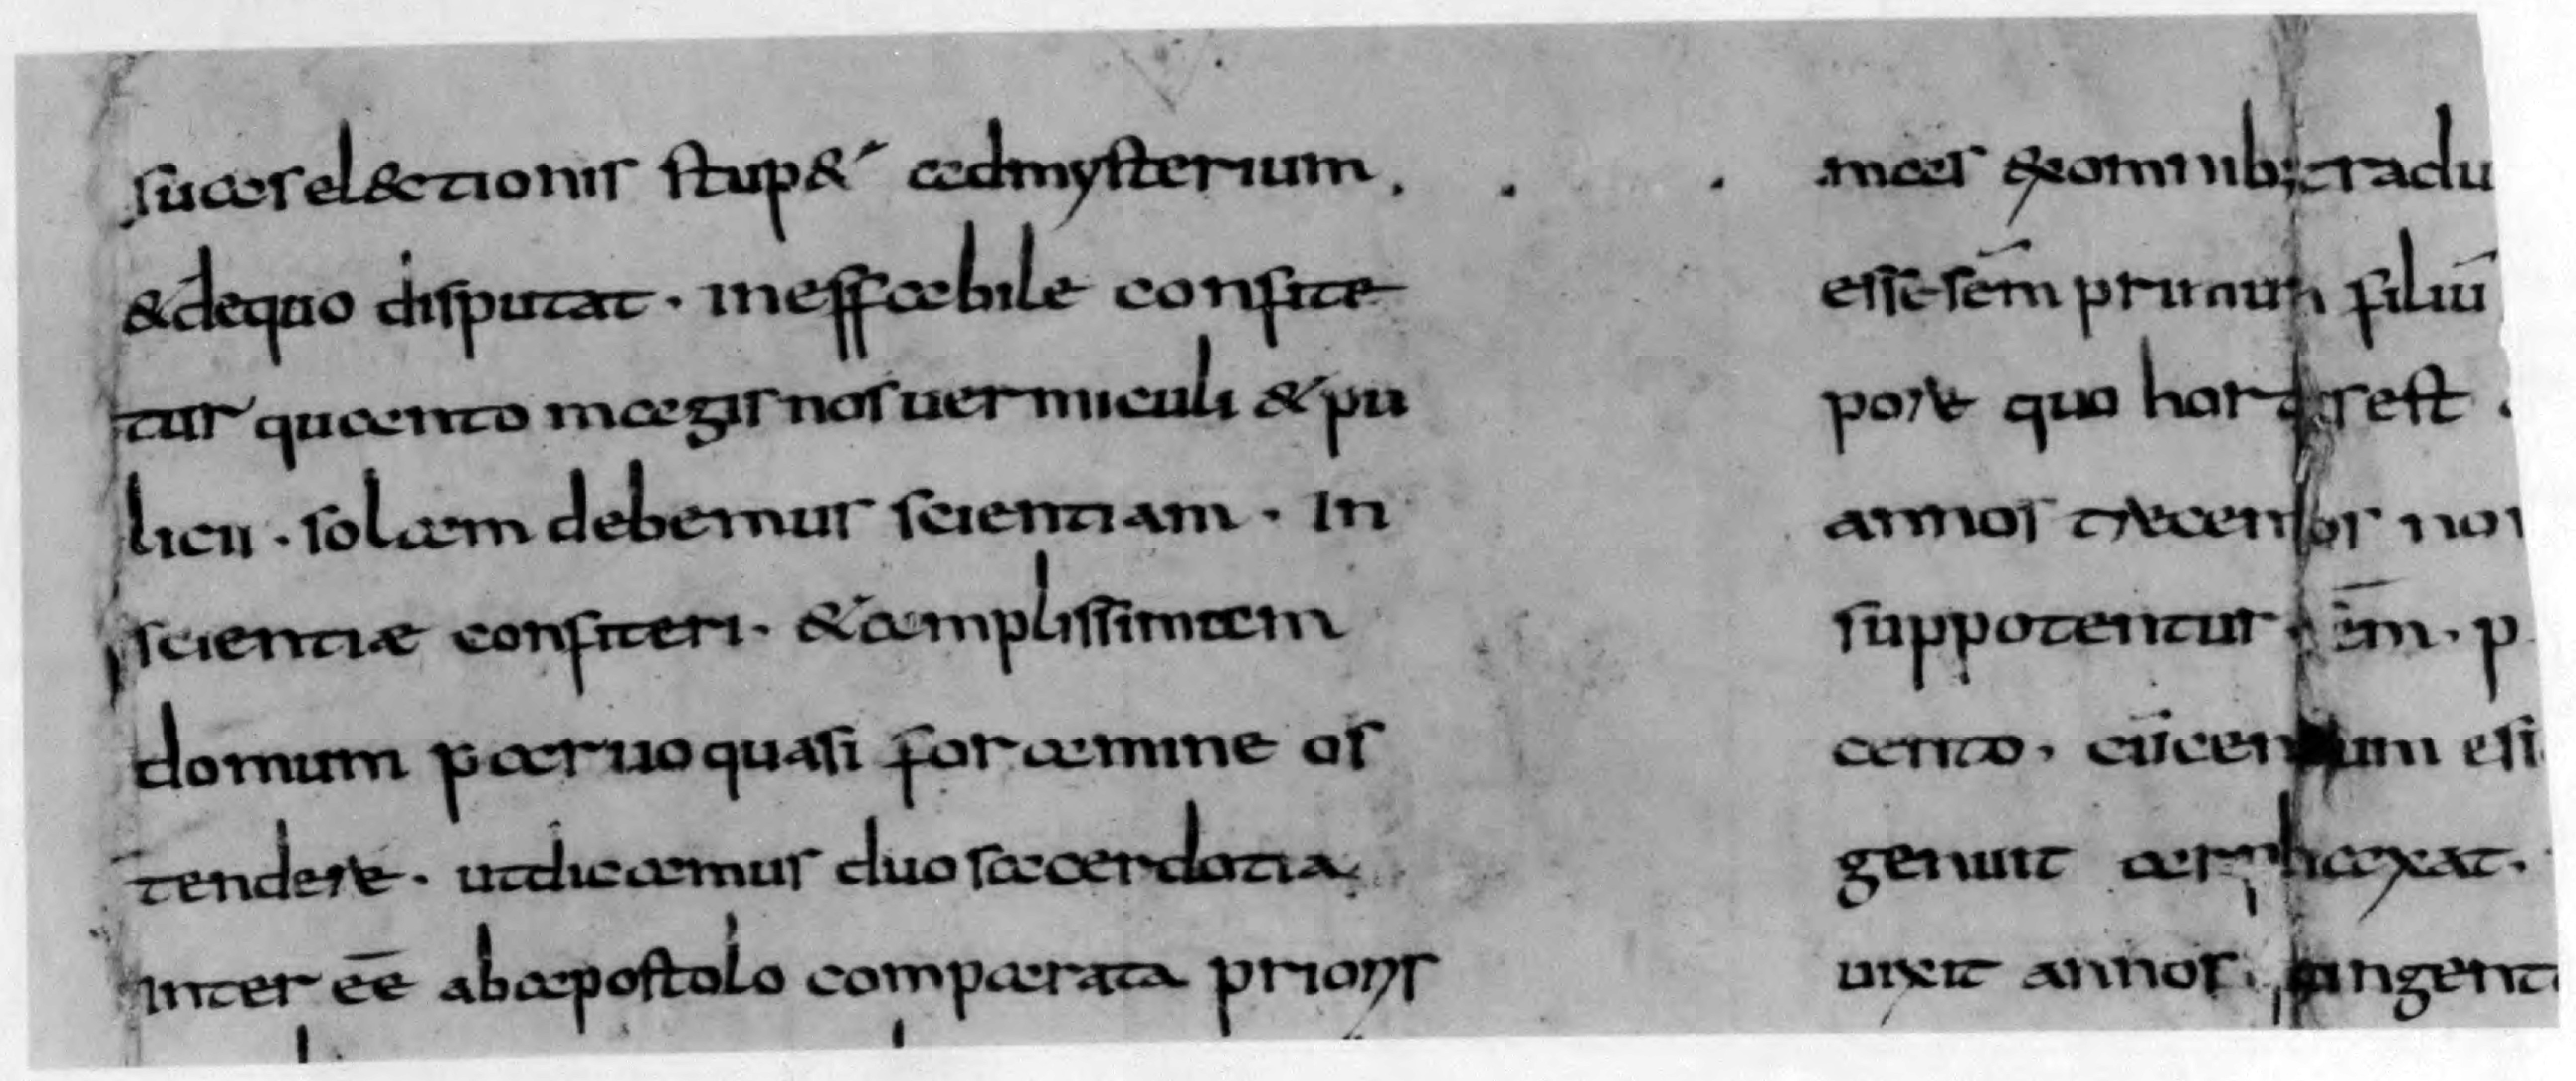 suas electionis stup& ad mysterium.
& de quo disputat. ineffabile confite
tur quanto magis nos uermiculi & pu
lices. solam debemus scientiam. In
scientiæ confiteri. & amplissimam
domum paruo quasi foramine os
tendere. ut dicamus duo sacerdotia
inter eē ab apostolo comparata prioris
mas & omnib; tradu
esse sēm primum filiū
pore quo hora est
annos trecentos
supputentur
cento.
genuit arphaxat.
uixit annos. quingent